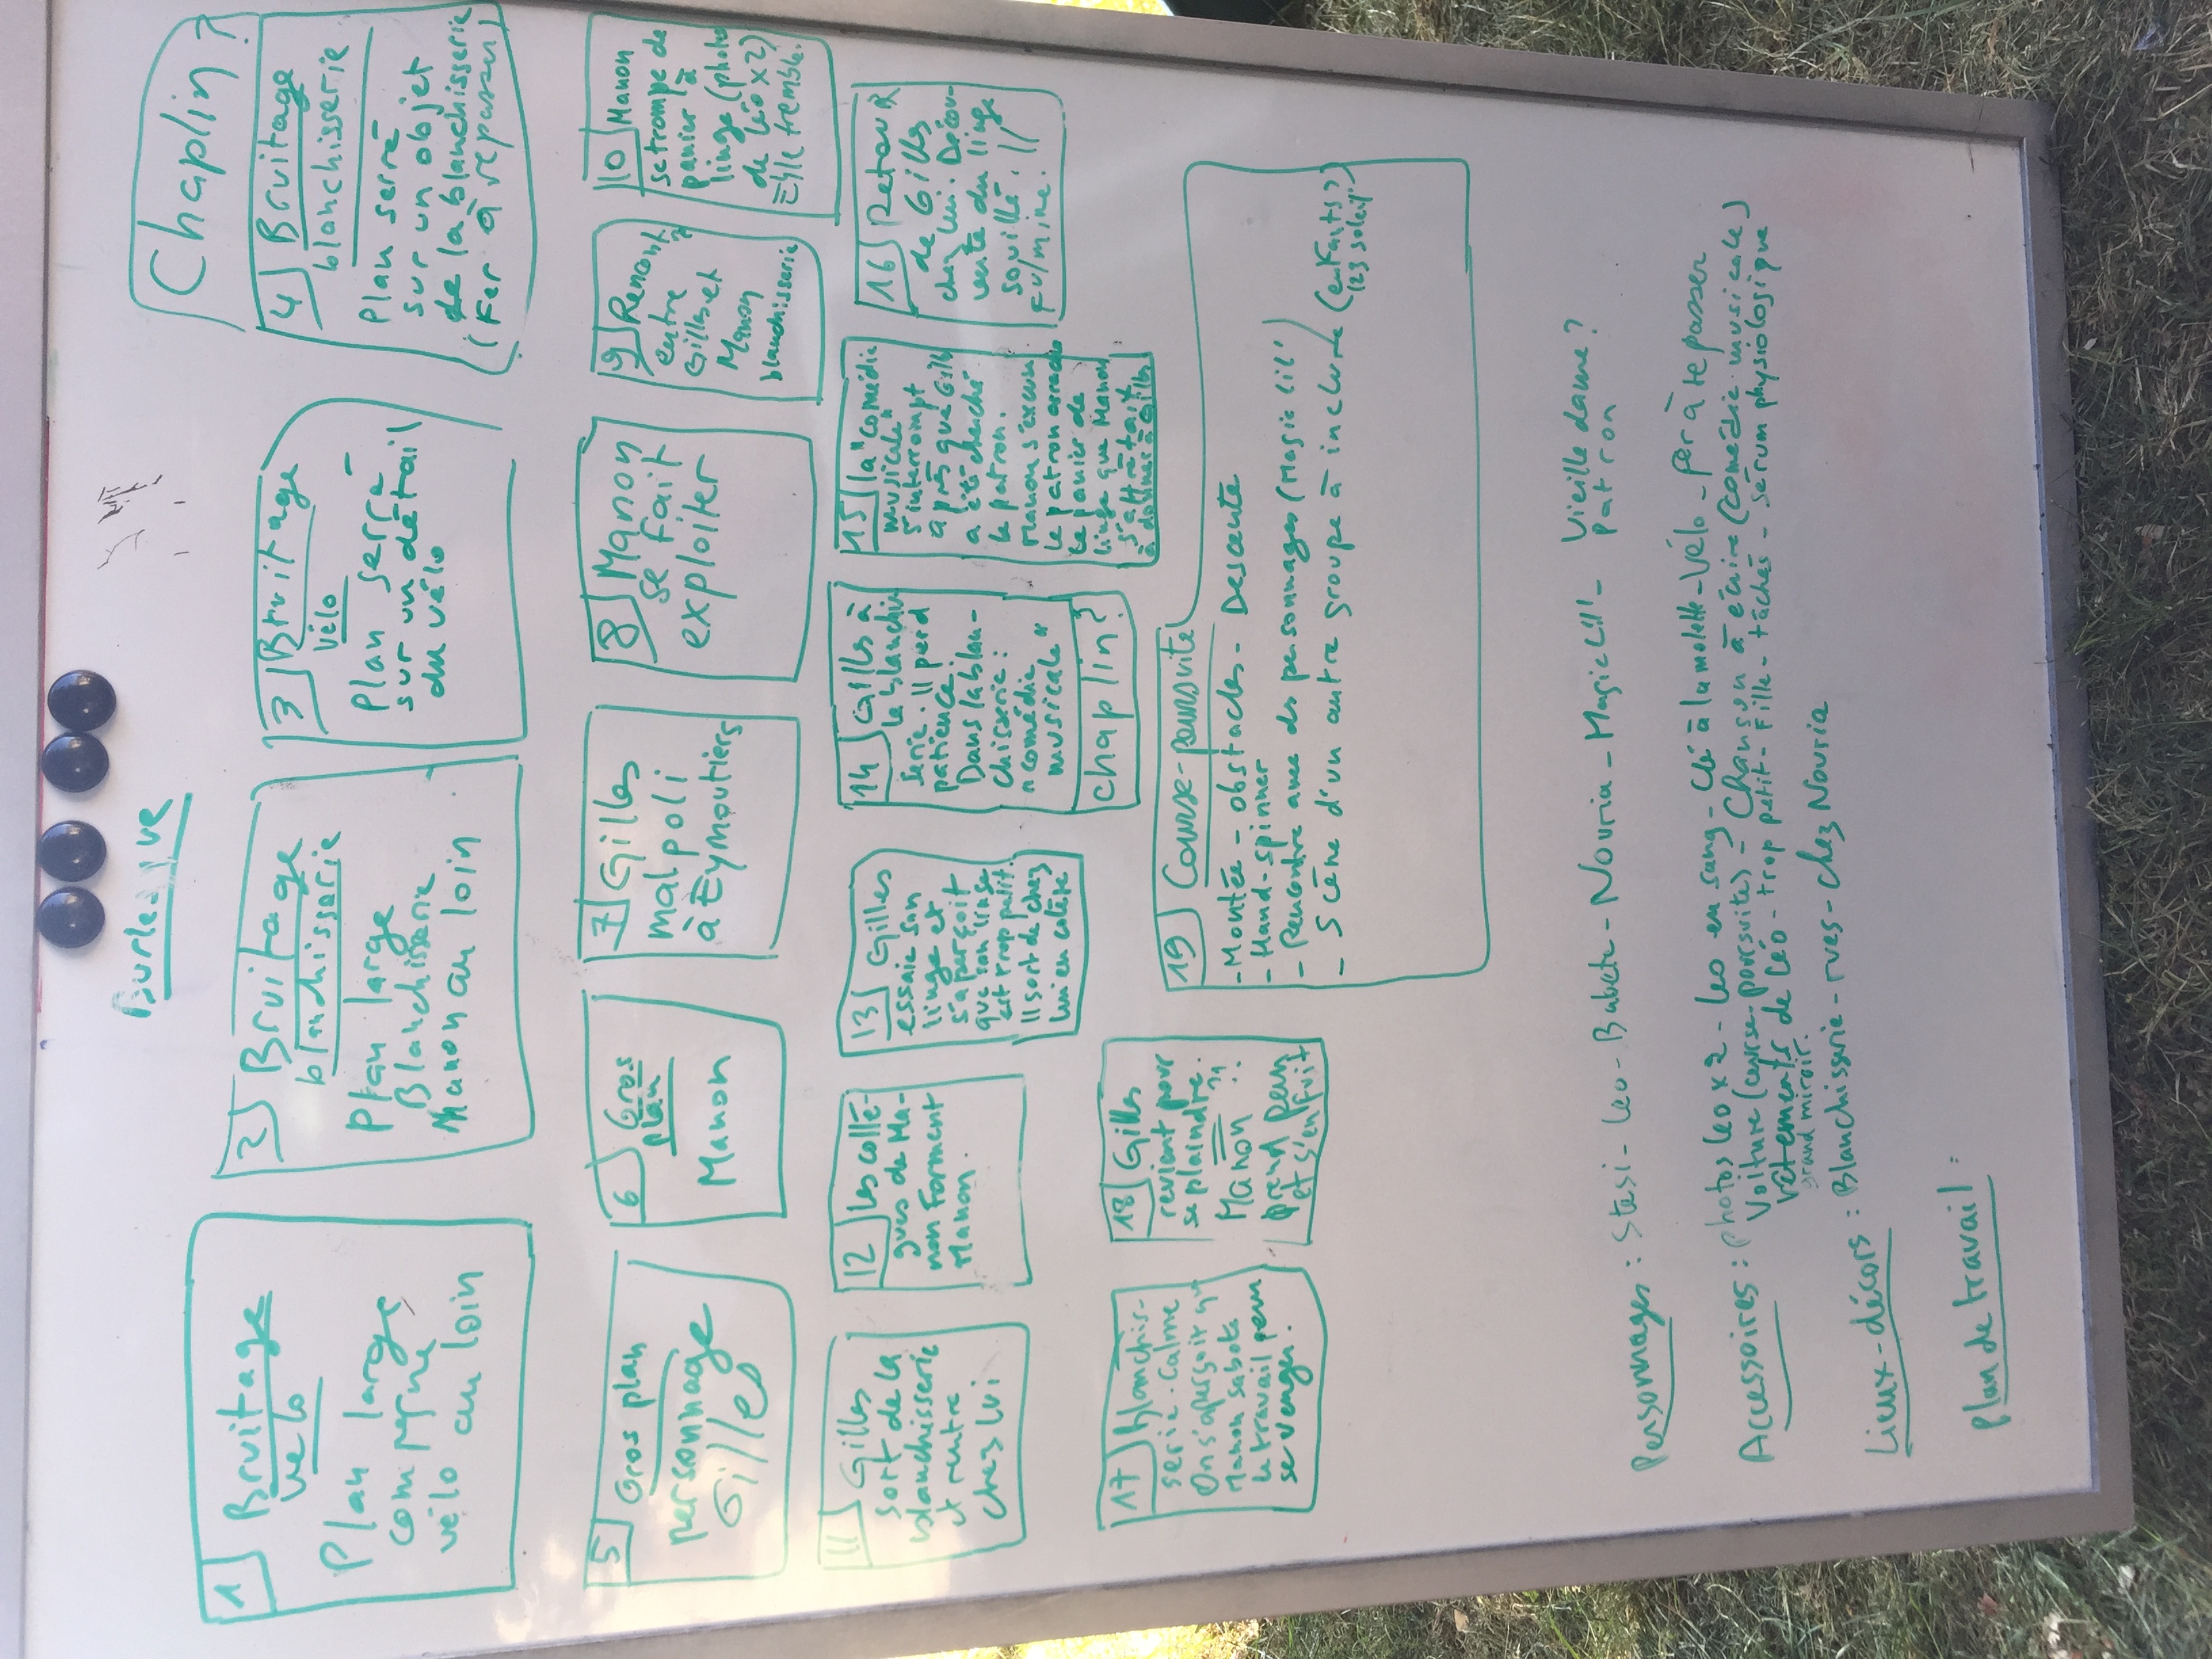 Burlesque
Chaplin ?
1 Bruitage
vélo
Plan large
vélo au loin
2 Bruitage
blanchisserie
Plan large
Blanchisserie
Manon au loin
3 Bruitage
vélo
Plan serré
sur un détail
du vélo
4 Bruitage
blanchisserie
Plan serré
sur un objet
de la blanchisserie
(Fer à repasser)
5 Gros plan
personnage
Gilles
6 Gros
plan
Manon
7 Gilles
malpoli
à Eymoutiers
8 Manon
se fait
exploiter
9 Rencontre
entre
Gilles et
Manon
blanchisserie
10 Manon
se trompe de
panier à
linge (photo
de Léo x 2)
Elle tremble.
11 Gilles
sort de la
blanchisserie
et rentre
chez lui
12 Les collè-
gues de Ma-
non forment
Manon.
13 Gilles
essaie son
linge et
s'aperçoit
que son linge
est trop petit.
Il sort de chez
lui en colère
14 Gilles à
la blanchis
serie. Il perd
patience.
Dans la blan-
chisserie :
"comédie
musicale"
Chaplin ?
15 La "comédie
musicale"
s'interrompt
après que Gilles
a été cherché
le patron.
Manon s'excuse
le patron arrache
le panier de
linge que Manon
s'apprêtait
à donner à Gilles
16 Retour
de Gilles
chez lui. Décou-
verte du linge
souillé. Il
fulmine.
17 blanchis-
serie. Calme
On s'aperçoit qu'
Manon sabote
le travail pour
se venger.
18 Gilles
revient pour
se plaindre.
Manon ?!
prend peur
et s'enfuit
19 Course-poursuite
- Montée - obstacles - Descente
- Hand-spinner
- Rencontre avec des personnages (Magic Lil')
- Scène d'un autre groupe à inclure (enfants ?)
123 soleil
Personnages : Stasi - Leo - Babete - Nouria - Magic Lil' - Vieille dame ?
patron
Accessoires : Photos leo x 2 - Leo en sang - Clé à la molette - Vélo - Fer à repasser
Voiture (course-poursuite) - Chanson à écrire (comédie musicale)
vêtements de Léo - trop petit - Fille - tachés - Sérum physiologique
grand miroir.
Lieux-décors : Blanchisserie - rues - chez Nouria
Plan de travail :